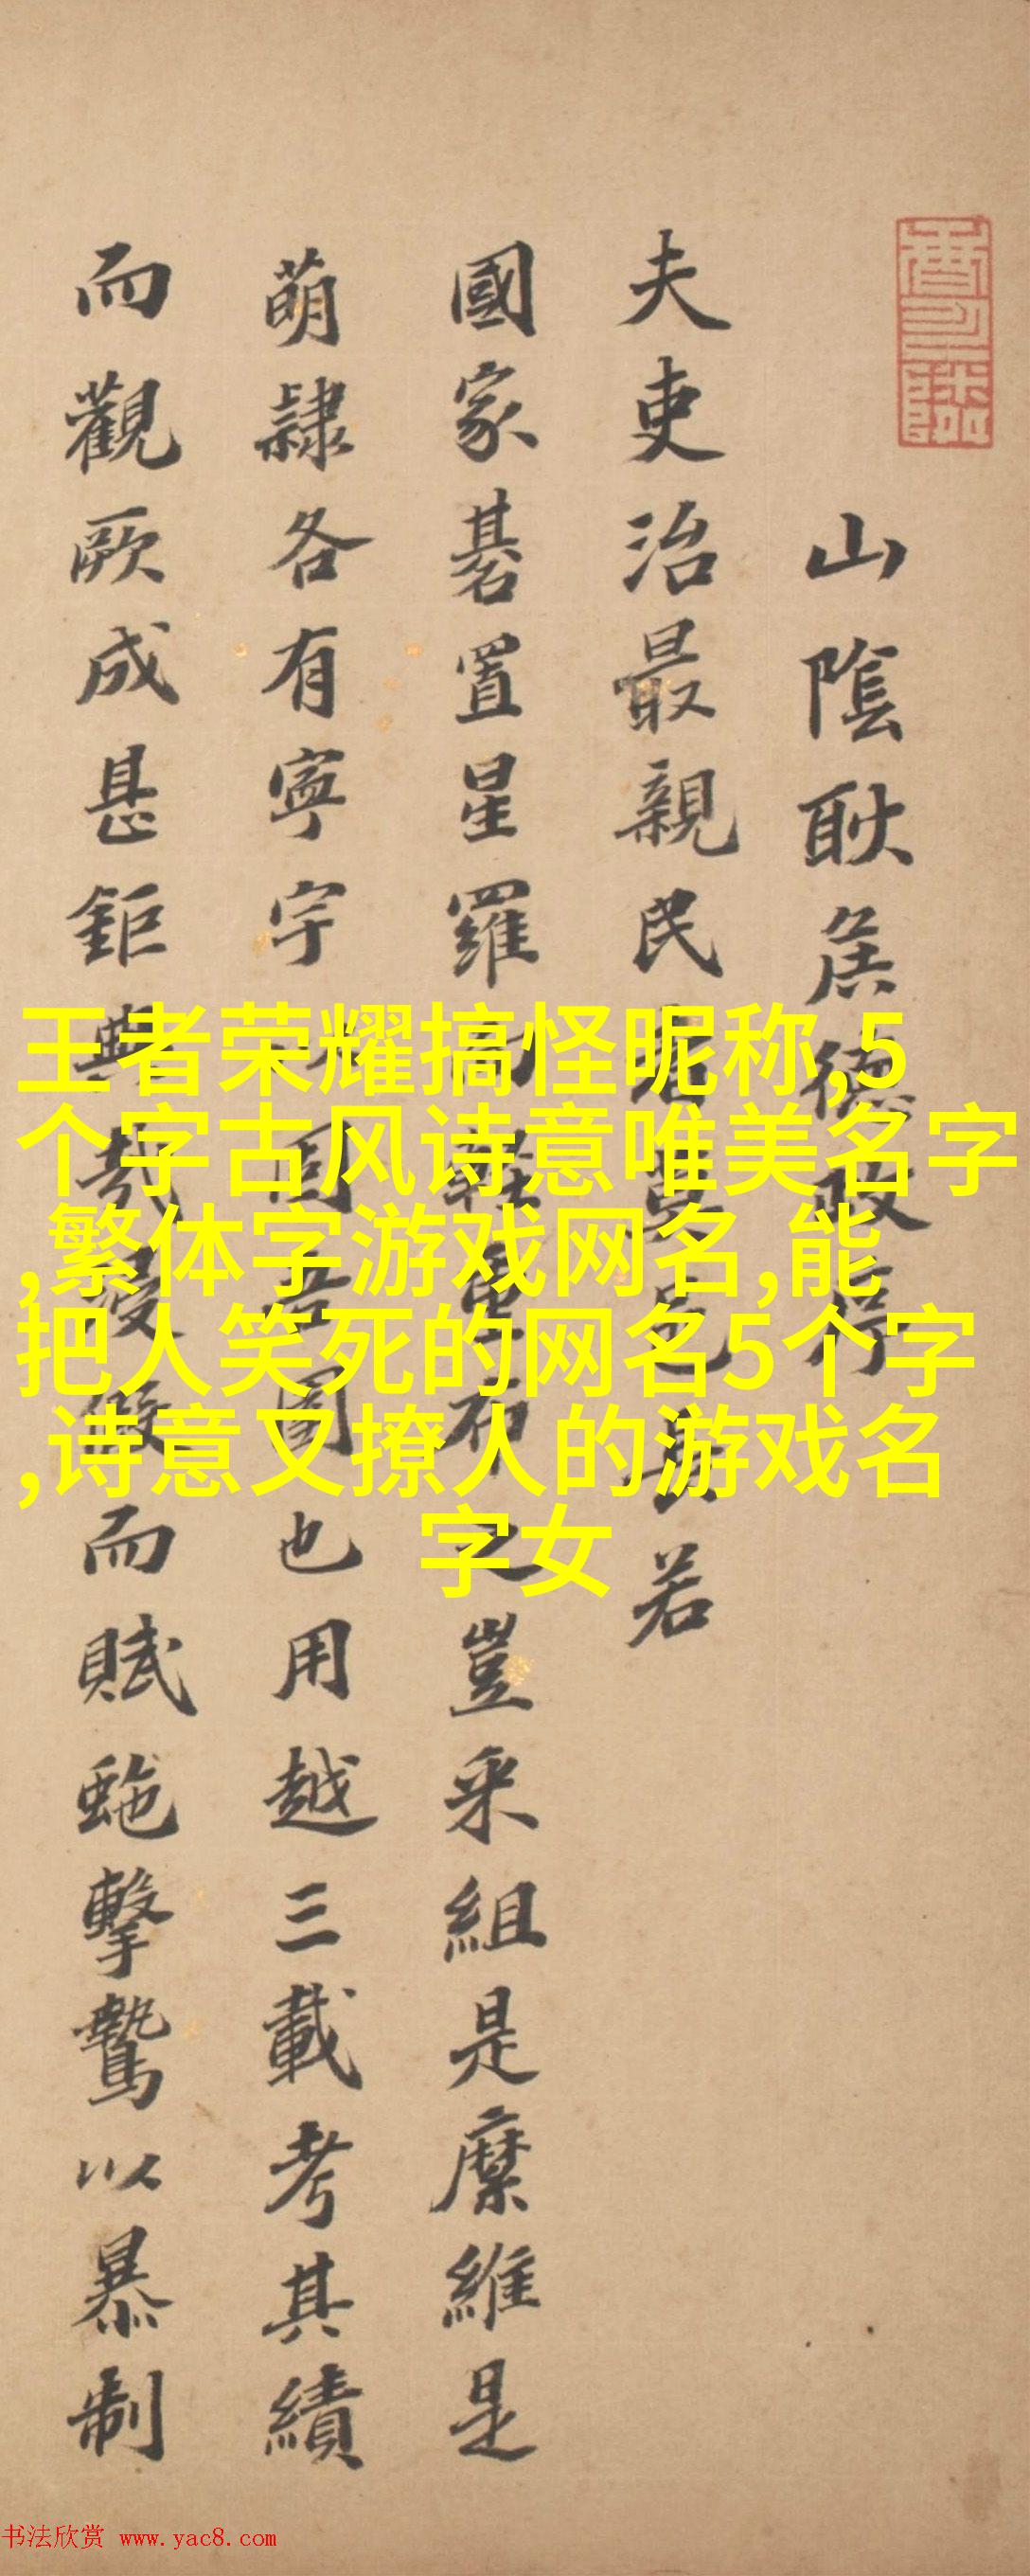 山陰耿矦德政序
夫吏治最親民者莫邑長若
國家碁置星羅布之豈采組是縻維是
萌隸各有寧宇圖也用越三載考其績
而觀厥成甚鉅典哉假而賦虵擊鷙以暴制
王者荣耀搞怪昵称,5
个字古风诗意唯美名字
,繁体字游戏网名,能
把人笑死的网名5个字
,诗意又撩人的游戏名
字女
书法欣赏 www.yac8.com